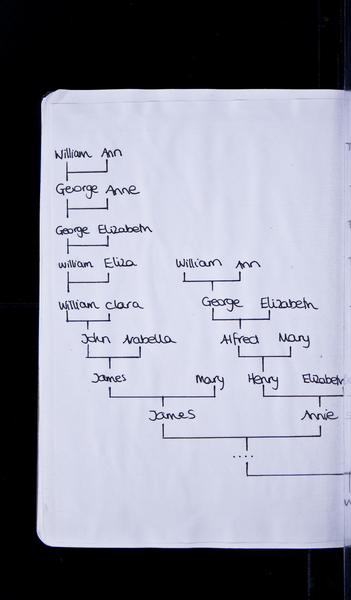 William Ann
George Anne
George Elizabeth
William Eliza William Ann
William Clara George Elizabeth
John Arabella Alfred Mary
James Mary Henry Elizabeth
James Annie
....